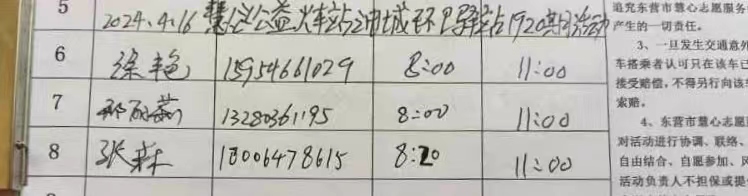 5 2024.4.16 慧心公益火车站油城环卫驿站1920期活动
追究东营市慧心志愿服务
产生的一切责任。
3、一旦发生交通意外
6 徐艳 15954661029 8:00 11:00
车搭乘者认可只在该车已
接受赔偿,不得另行向该
索赔。
7 13280361195 8:00 11:00
4、东营市慧心志愿
8 张森 18006478615 8:20 11:00
对活动进行协调、联络、
自由结合、自愿参加、风
活动负责人不担保或提